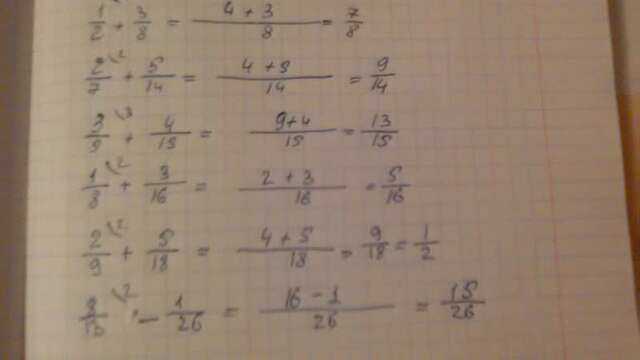 1/2 + 3/8 = 4 + 3/8 = 7/8
2/7 + 5/14 = 4 + 5/14 = 9/14
3/5 + 4/15 = 9+4/15 = 13/15
1/8 + 3/16 = 2 + 3/16 = 5/16
2/9 + 5/18 = 4 + 5/18 = 9/18 = 1/2
8/13 - 1/26 = 16 - 1/26 = 15/26